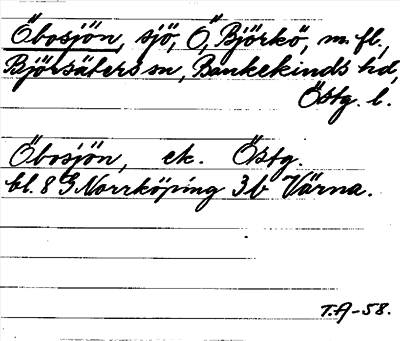 Öbosjön, sjö, Ö, Björkö, m. fl.,
Björsäters sn, Bankekinds hd,
Östg. l.
Öbosjön, ek. Östg.
bl. 8 G Norrköping 3b Värna.
T.A-58.